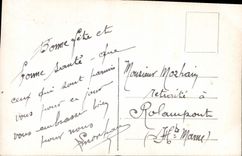 Bonne fête et
bonne santé - que
ceux qui sont parmi
vous pour ce jour
vous embrassent bien
pour nous
Monsieur Morhain
retraité à
Rolampont
(Hte Marne)